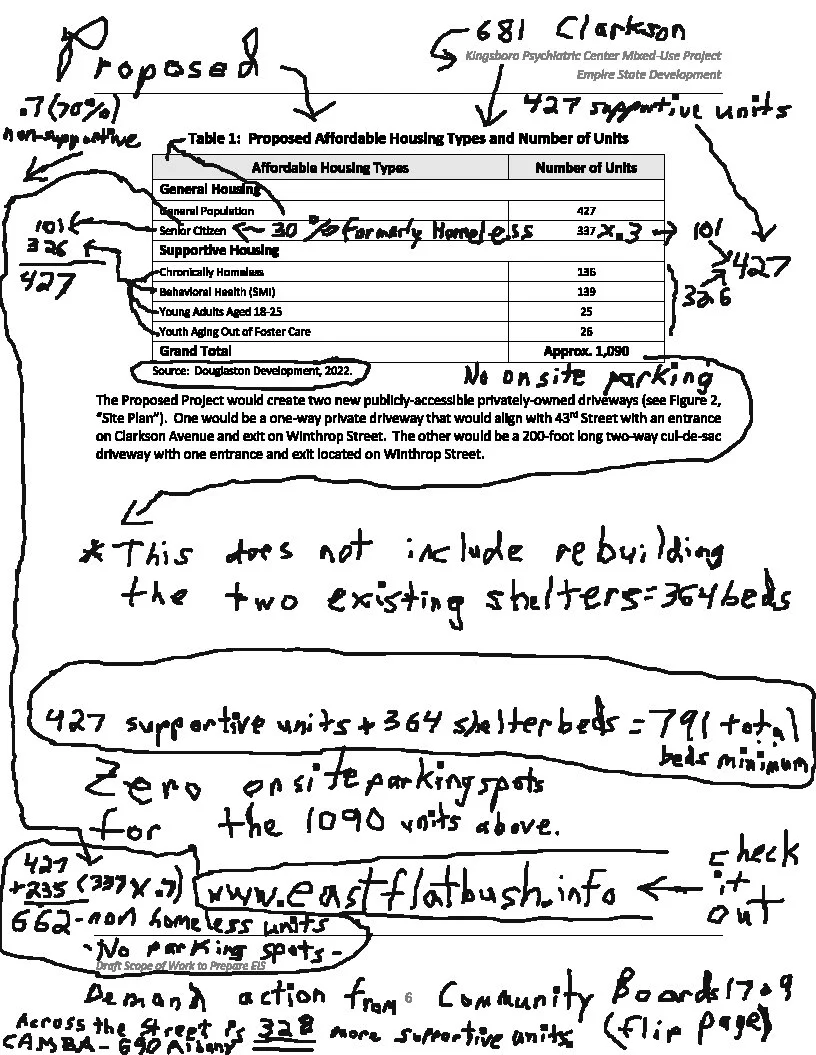 681 Clarkson
Proposed
Kingsboro Psychiatric Center Mixed-Use Project
Empire State Development
.7 (70%)
non-supportive
427 supportive units
Table 1: Proposed Affordable Housing Types and Number of Units
Affordable Housing Types Number of Units
General Housing
General Population 427
Senior Citizen 30% Formerly Homeless 337 x.3 → 101
Supportive Housing
Chronically Homeless 136
Behavioral Health (SMI) 139
Young Adults Aged 18-25 25
Youth Aging Out of Foster Care 26
Grand Total Approx. 1,090
101
326
427
326
427
Source: Douglaston Development, 2022.
No onsite parking
The Proposed Project would create two new publicly-accessible privately-owned driveways (see Figure 2,
“Site Plan”). One would be a one-way private driveway that would align with 43rd Street with an entrance
on Clarkson Avenue and exit on Winthrop Street. The other would be a 200-foot long two-way cul-de-sac
driveway with one entrance and exit located on Winthrop Street.
*This does not include rebuilding
the two existing shelters=364 beds
427 supportive units + 364 shelter beds = 791 total
beds minimum
Zero onsite parking spots
for the 1090 units above.
427
+235 (337 x .7)
662-non homeless units
-No parking spots-
www.eastflatbush.info
check
it
out
Draft Scope of Work to Prepare EIS
6
Demand action from Community Boards 17 & 9
(flip page)
Across the street is 328 more supportive units.
CAMBA- 690 Albany